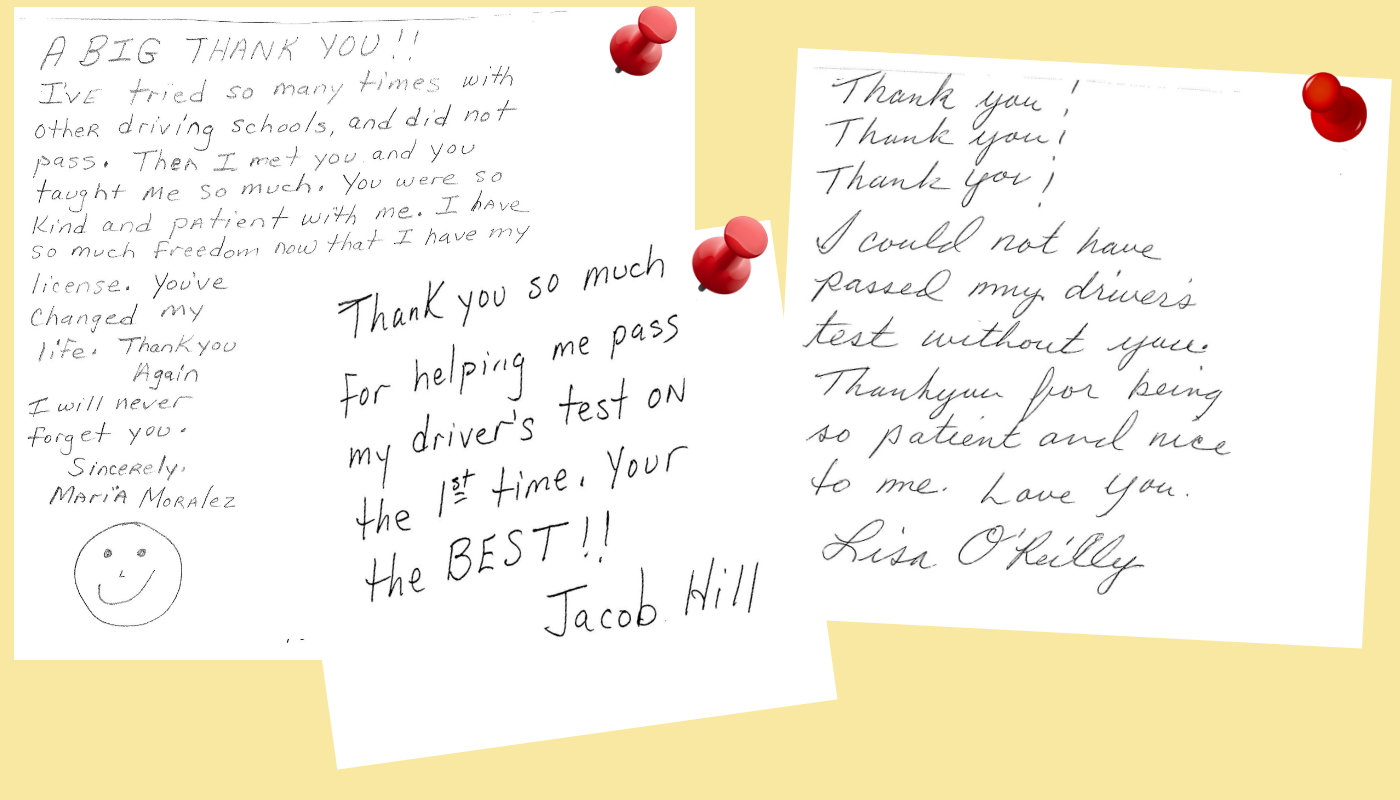 A BIG THANK YOU!!
I'VE tried so many times with
other driving schools, and did not
pass. Then I met you and you
taught me so much. You were so
kind and patient with me. I have
so much freedom now that I have my
license. You've
changed my
life. Thank you
Again
I will never
forget you.
Sincerely,
Maria Moralez
Thank you so much
for helping me pass
my driver's test ON
the 1st time. Your
the BEST!!
Jacob Hill
Thank you!
Thank you!
Thank you!
I could not have
passed my driver's
test without you.
Thankyou for being
so patient and nice
to me. Love you.
Lisa O'Reilly